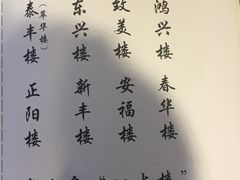 鸿兴楼 春华楼
致美楼 安福楼
东兴楼 新丰楼
(萃华楼)
泰丰楼 正阳楼
楼”